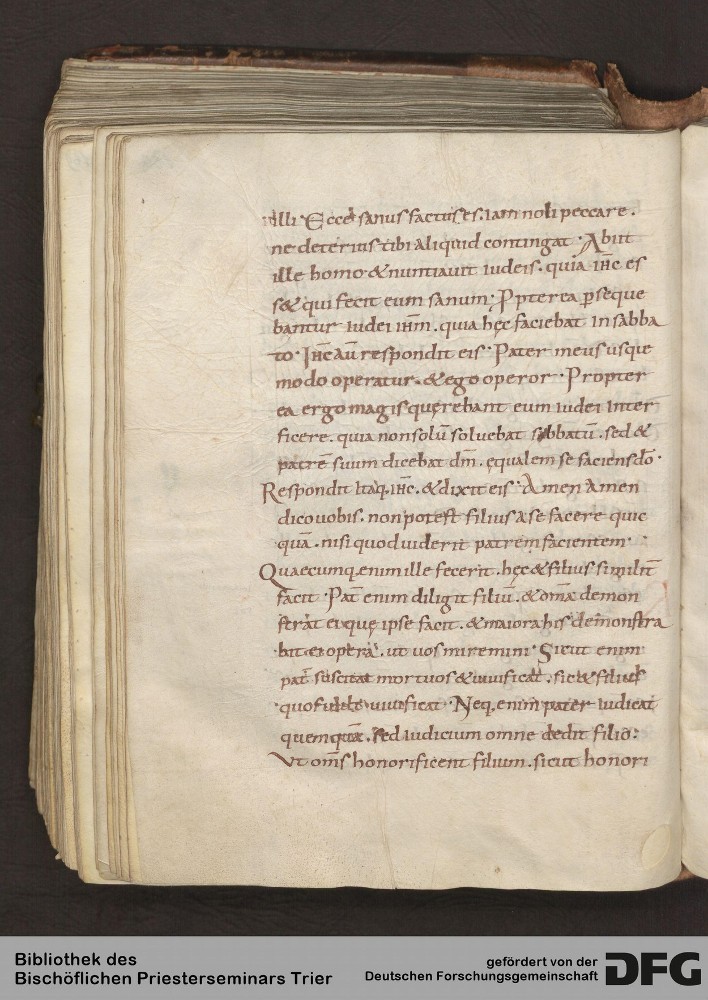 illi · Ecce sanus factus es. iam noli peccare.
ne deterius tibi aliquid contingat · Abiit
ille homo & nuntiauit iudeis. quia ihc es
s& qui fecit eum sanum · Ppterea pseque
bantur iudei ihm. quia hęc faciebat in sabba
to · Ihc au respondit eis · Pater meus usque
modo operatur. & ego operor · Propter
ea ergo magis querebant eum iudei inter
ficere. quia non solū soluebat sabbatū. sed &
patrē suum dicebat dm. ęqualem se faciens do ·
Respondit itaq. ihc. & dixit eis · Amen amen
dico uobis. non potest filius a se facere quic
quā. nisi quod uiderit patrem facientem ·
Quaecumq. enim ille fecerit. hęc & filius similit
facit · Pat enim diligit filiū. & omīa demon
strat ei quę ipse facit. & maiora his demonstra
bit ei opera. ut uos miremini · Sicut enim
pat suscitat mortuos & uiuificat. sic & filius
quos uult uiuificat · Neq. enim pater iudicat
quemquā. sed iudicium omne dedit filio :
Ut oms honorificent filium. sicut honori
Bibliothek des
Bischöflichen Priesterseminars Trier
gefördert von der
Deutschen Forschungsgemeinschaft
DFG